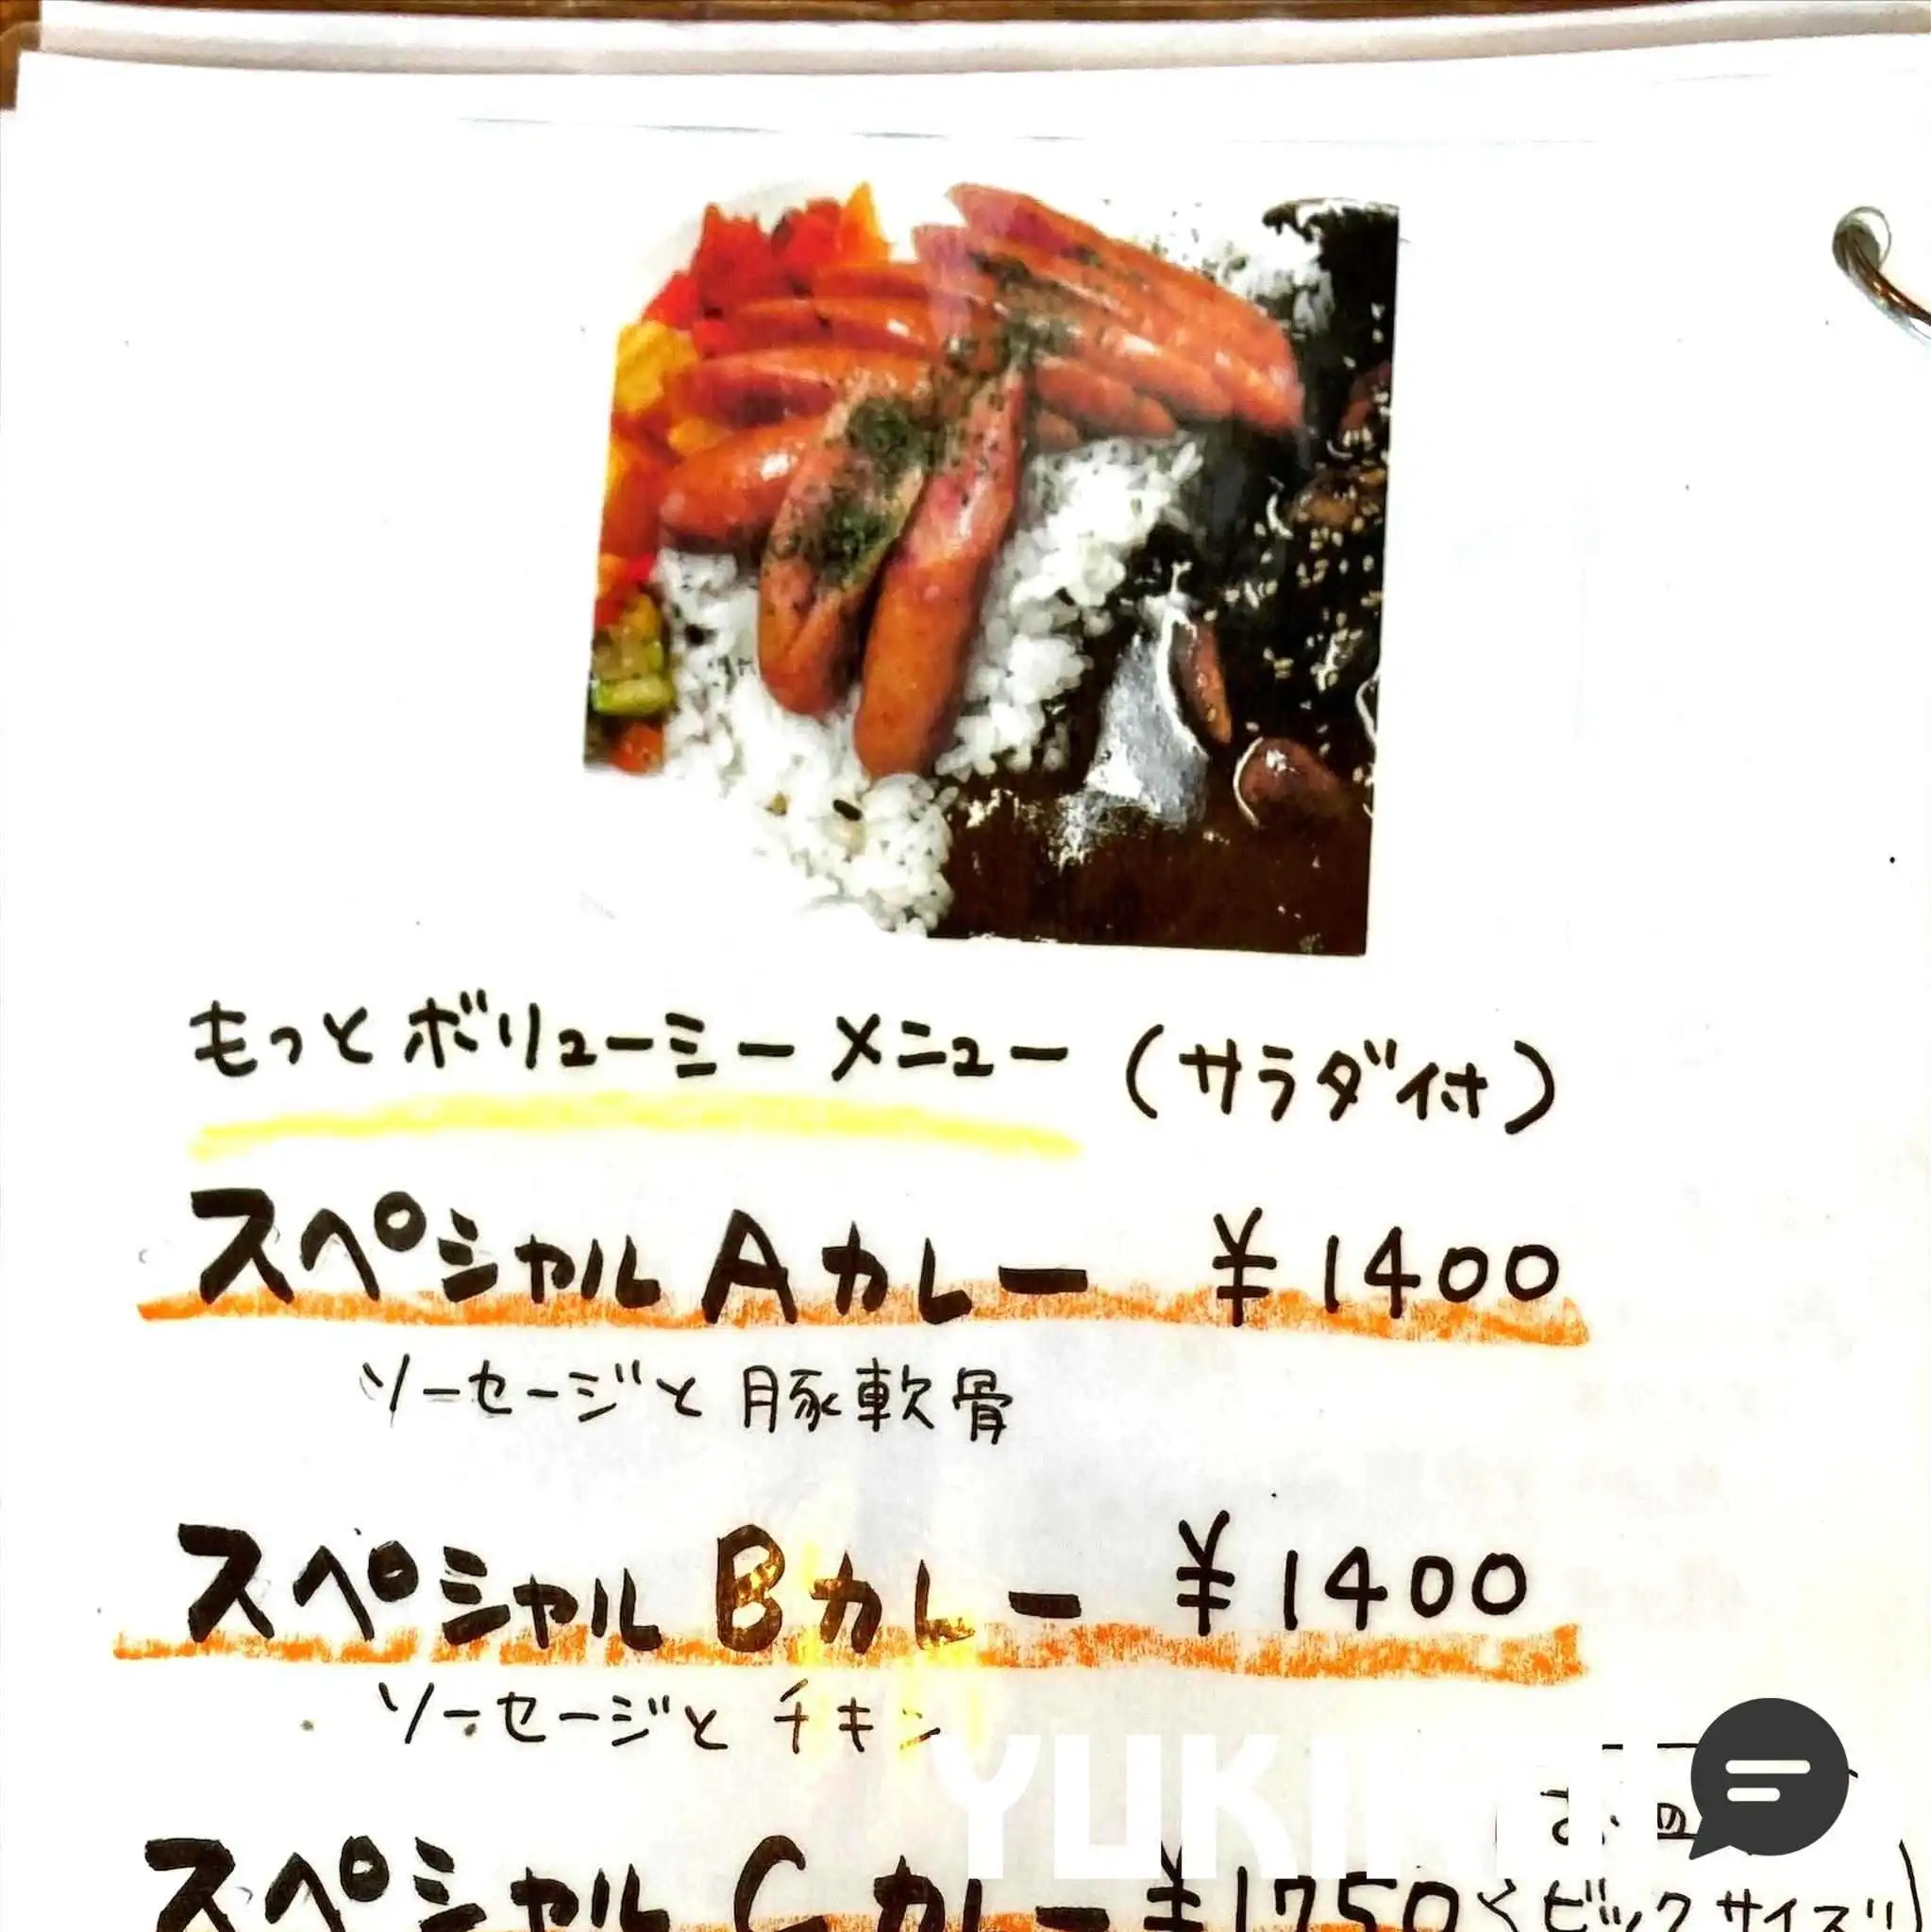 もっとボリューミーメニュー（サラダ付）
スペシャル A カレー ¥1400
ソーセージと豚軟骨
スペシャル B カレー ¥1400
ソーセージとチキン
スペシャル C カレー ¥1750
ビックサイズ!!